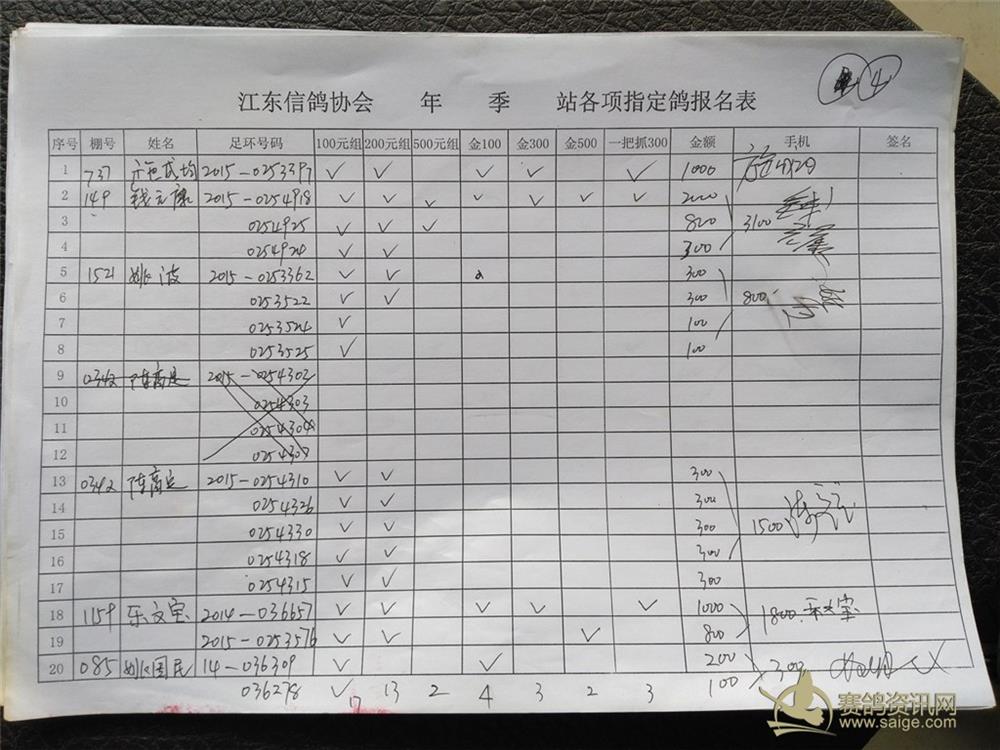 4
江东信鸽协会 年 季 站各项指定鸽报名表
序号 棚号 姓名 足环号码 100元组 200元组 500元组 金100 金300 金500 一把抓300 金额 手机 签名
1 737 2015-0253397 ✓ ✓ ✓ ✓ ✓ 1000
2 149 钱元康 2015-0254918 ✓ ✓ ✓ ✓ ✓ ✓ ✓ 2000
3 0254925 ✓ ✓ ✓ 800 3100
4 0254924 ✓ ✓ 300
5 1521 姚波 2015-0253362 ✓ ✓ 300
6 0253522 ✓ ✓ 300 800
7 0253524 ✓ 100
8 0253525 ✓ 100
9 0342 2015-0254302
10 0254303
11 0254304
12 0254307
13 0342 2015-0254310 ✓ ✓ 300
14 0254326 ✓ ✓ 300
15 0254330 ✓ ✓ 300 1500
16 0254318 ✓ ✓ 300
17 0254315 ✓ ✓ 300
18 1159 乐文宝 2014-036657 ✓ ✓ ✓ ✓ ✓ 1000 1800 乐文宝
19 2015-0253576 ✓ ✓ ✓ 800
20 085 姚国民 14-036309 ✓ ✓ 200 300
036278 ✓ 100
17 13 2 4 3 2 3
赛鸽资讯网
www.saige.com